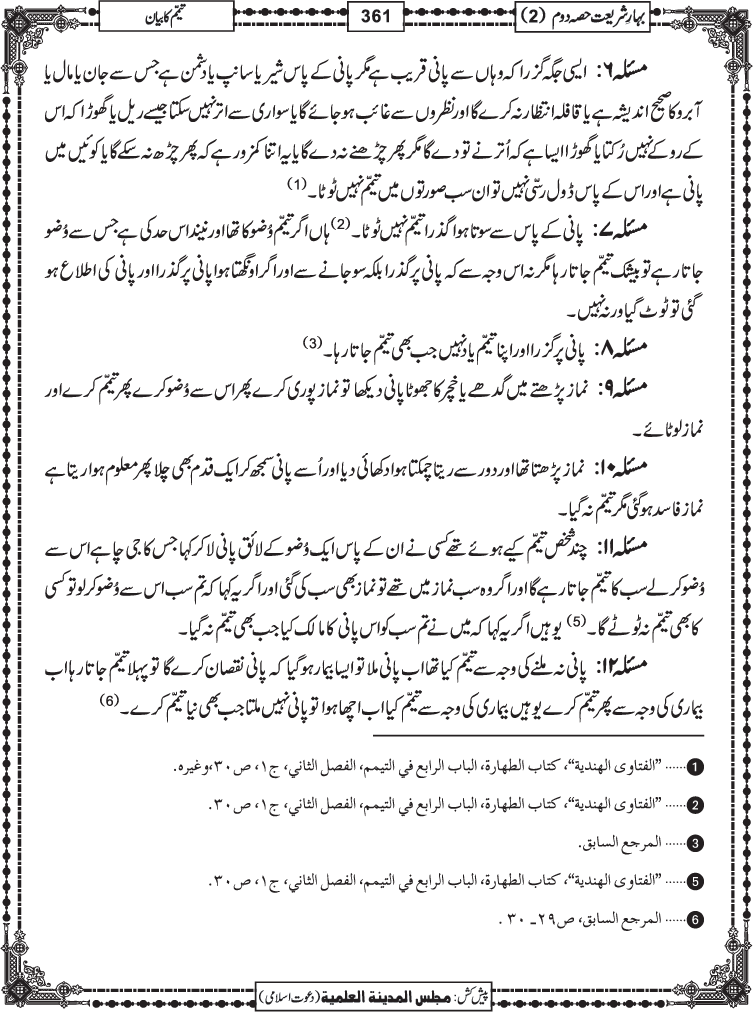 بہارِ شریعت حصہ دوم (2)
361
تیمّم کا بیان
مسئلہ ۶: ایسی جگہ گزرا کہ وہاں سے پانی قریب ہے مگر پانی کے پاس شیر یا سانپ یا دشمن ہے جس سے جان یا مال یا
آبرو کا صحیح اندیشہ ہے یا قافلہ انتظار نہ کرے گا اور نظروں سے غائب ہو جائے گا یا سواری سے اتر نہیں سکتا جیسے ریل یا گھوڑا کہ اس
کے روکے نہیں رُکتا یا گھوڑا ایسا ہے کہ اُترنے تو دے گا مگر پھر چڑھنے نہ دے گا یا یہ اتنا کمزور ہے کہ پھر چڑھ نہ سکے گا یا کوئیں میں
پانی ہے اور اس کے پاس ڈول رسّی نہیں تو ان سب صورتوں میں تیمّم نہیں ٹوٹا۔ (1)
مسئلہ ۷: پانی کے پاس سے سوتا ہوا گذرا تیمّم نہیں ٹوٹا۔ (2) ہاں اگر تیمّم وُضو کا تھا اور نیند اس حد کی ہے جس سے وُضو
جاتا رہے تو بیشک تیمّم جاتا رہا مگر نہ اس وجہ سے کہ پانی پر گذرا بلکہ سو جانے سے اور اگر اونگھتا ہوا پانی پر گذرا اور پانی کی اطلاع ہو
گئی تو ٹوٹ گیا ورنہ نہیں۔
مسئلہ ۸: پانی پر گزرا اور اپنا تیمّم یاد نہیں جب بھی تیمّم جاتا رہا۔ (3)
مسئلہ ۹: نماز پڑھتے میں گدھے یا خچر کا جھوٹا پانی دیکھا تو نماز پوری کرے پھر اس سے وُضو کرے پھر تیمّم کرے اور
نماز لوٹائے۔
مسئلہ ۱۰: نماز پڑھتا تھا اور دور سے ریتا چمکتا ہوا دکھائی دیا اور اُسے پانی سمجھ کر ایک قدم بھی چلا پھر معلوم ہوا ریتا ہے
نماز فاسد ہو گئی مگر تیمّم نہ گیا۔
مسئلہ ۱۱: چند شخص تیمّم کیے ہوئے تھے کسی نے ان کے پاس ایک وُضو کے لائق پانی لا کر کہا جس کا جی چاہے اس سے
وُضو کر لے سب کا تیمّم جاتا رہے گا اور اگر وہ سب نماز میں تھے تو نماز بھی سب کی گئی اور اگر یہ کہا کہ تم سب اس سے وُضو کر لو تو کسی
کا بھی تیمّم نہ ٹوٹے گا۔ (5) یوہیں اگر یہ کہا کہ میں نے تم سب کو اس پانی کا مالک کیا جب بھی تیمّم نہ گیا۔
مسئلہ ۱۲: پانی نہ ملنے کی وجہ سے تیمّم کیا تھا اب پانی ملا تو ایسا بیمار ہو گیا کہ پانی نقصان کرے گا تو پہلا تیمّم جاتا رہا اب
بیماری کی وجہ سے پھر تیمّم کرے یوہیں بیماری کی وجہ سے تیمّم کیا اب اچھا ہوا تو پانی نہیں ملتا جب بھی نیا تیمّم کرے۔ (6)
1 ...... "الفتاوی الهندیة"، کتاب الطهارة، الباب الرابع في التیمم، الفصل الثاني، ج۱، ص۳۰، وغیره.
2 ...... "الفتاوی الهندیة"، کتاب الطهارة، الباب الرابع في التیمم، الفصل الثاني، ج۱، ص۳۰.
3 ...... المرجع السابق.
5 ...... "الفتاوی الهندیة"، کتاب الطهارة، الباب الرابع في التیمم، الفصل الثاني، ج۱، ص۳۰.
6 ...... المرجع السابق، ص۲۹ـ ۳۰ .
پیش کش: مجلس المدینة العلمیة (دعوت اسلامی)